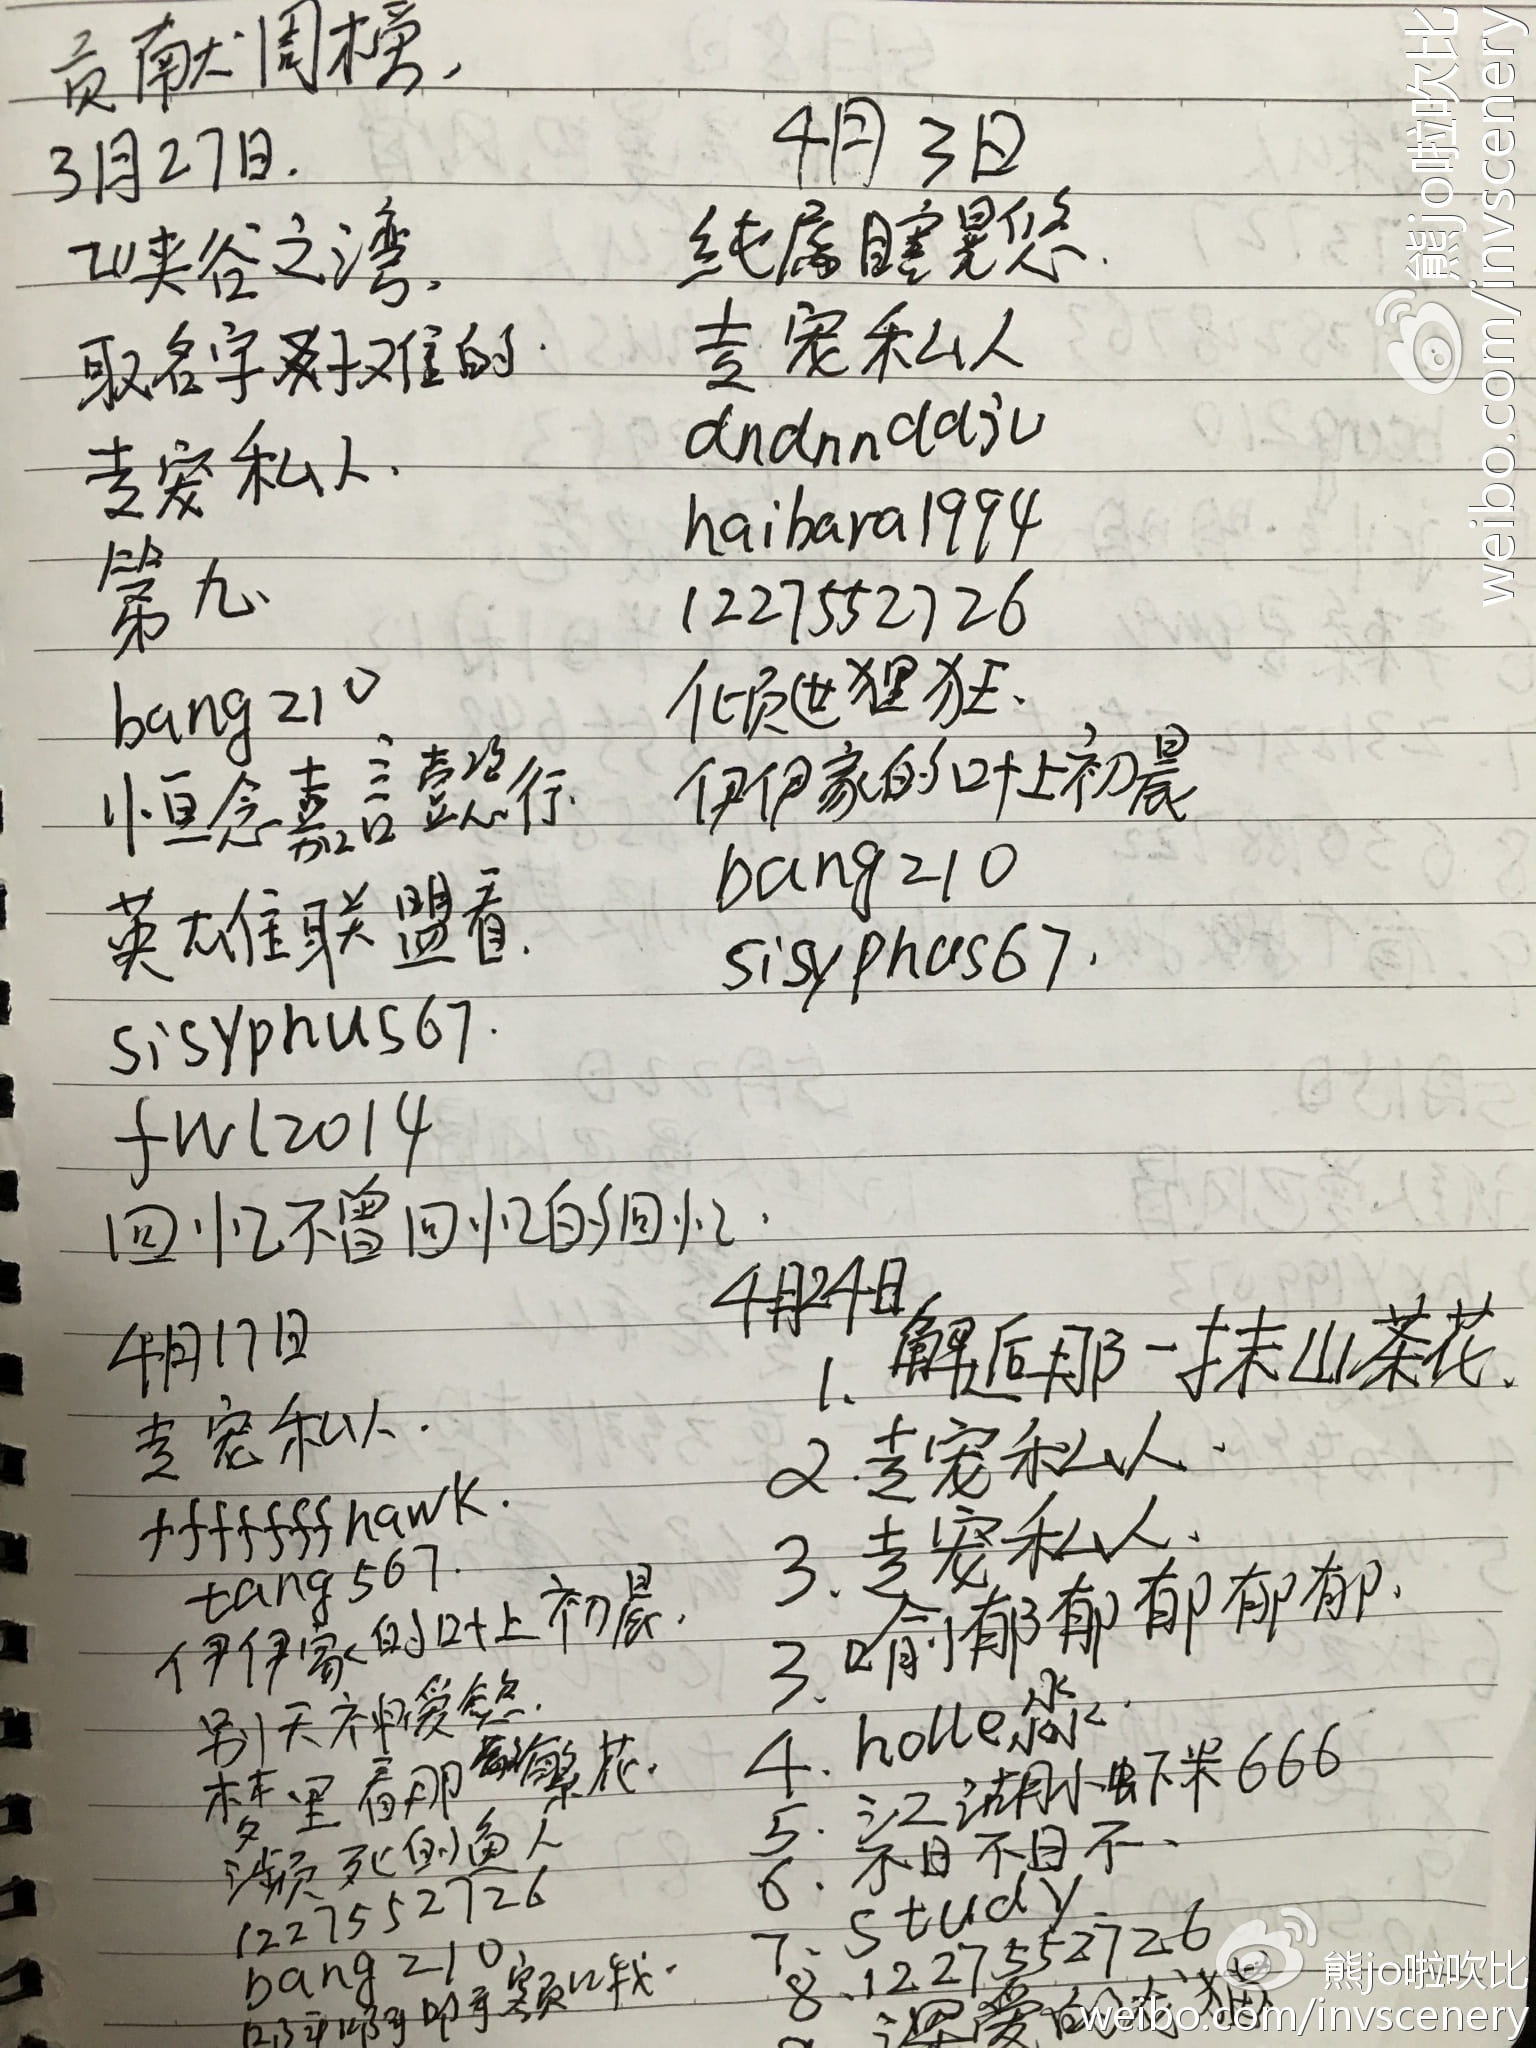 贡献周榜,
3月27日.
峡谷之湾.
取名字好难的.
专宠私人.
第九
bang210
恒念嘉言懿行.
英雄联盟看.
sisyphus67.
fwl2014
回忆不曾回忆的回忆.
4月3日
纯属瞎晃悠.
专宠私人
dndnnddju
haibara1994
1227552726
倾世狸狂.
伊伊家的叶上初晨
bang210
sisyphus67.
4月17日
专宠私人.
fffffffhawk.
tang567.
伊伊家的叶上初晨.
别天神爱
梦里看那繁花.
濒死的鱼人
1227552726
bang210
4月24日
1. 邂逅那一抹山茶花.
2. 专宠私人.
3. 专宠私人.
3. 喻郁郁郁郁郁.
4. holle淼.
5. 江湖小虾米666
6. 不日不日不.
7. study
8. 1227552726
深爱的
熊jo啦吹比
weibo.com/invscenery
熊jo啦吹比
weibo.com/invscenery